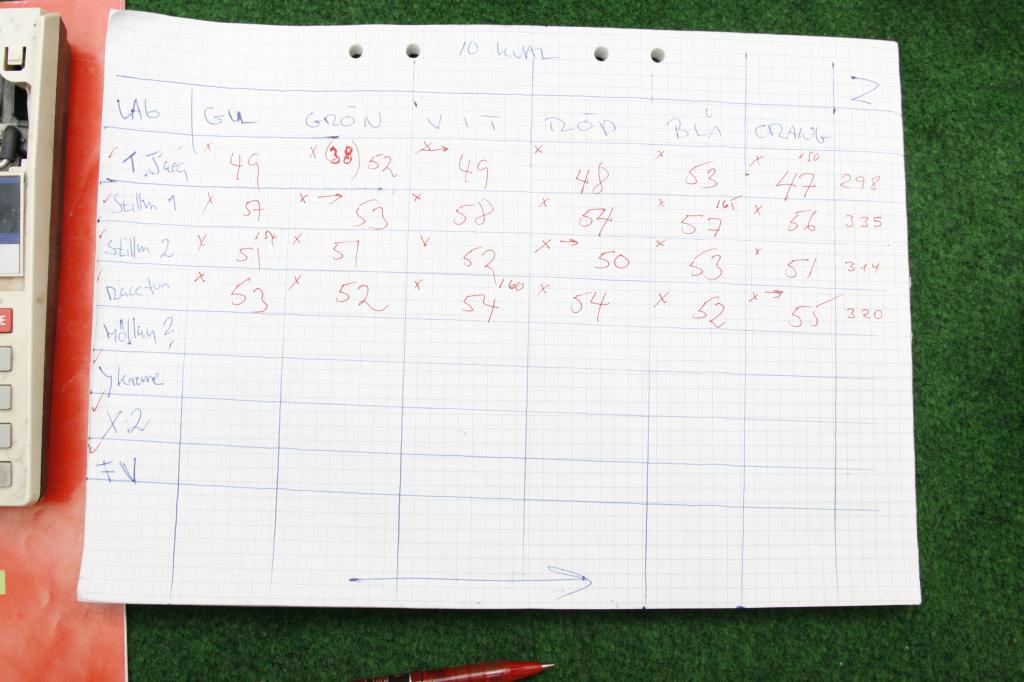 10 KVAL
2
LAG GUL GRÖN VIT RÖD BLÅ ORANG
x 49 x (38) 52 x→ 49 x 48 x 53 x 47 150 298
Stillm 1 x 57 x → 53 x 58 x 54 x 57 165 x 56 335
Stillm 2 x 51 154 x 51 x x→ 50 x 53 x 51 314
x 53 x 52 x 54 160 x 54 x 52 x→ 55 320
X2
FV
E